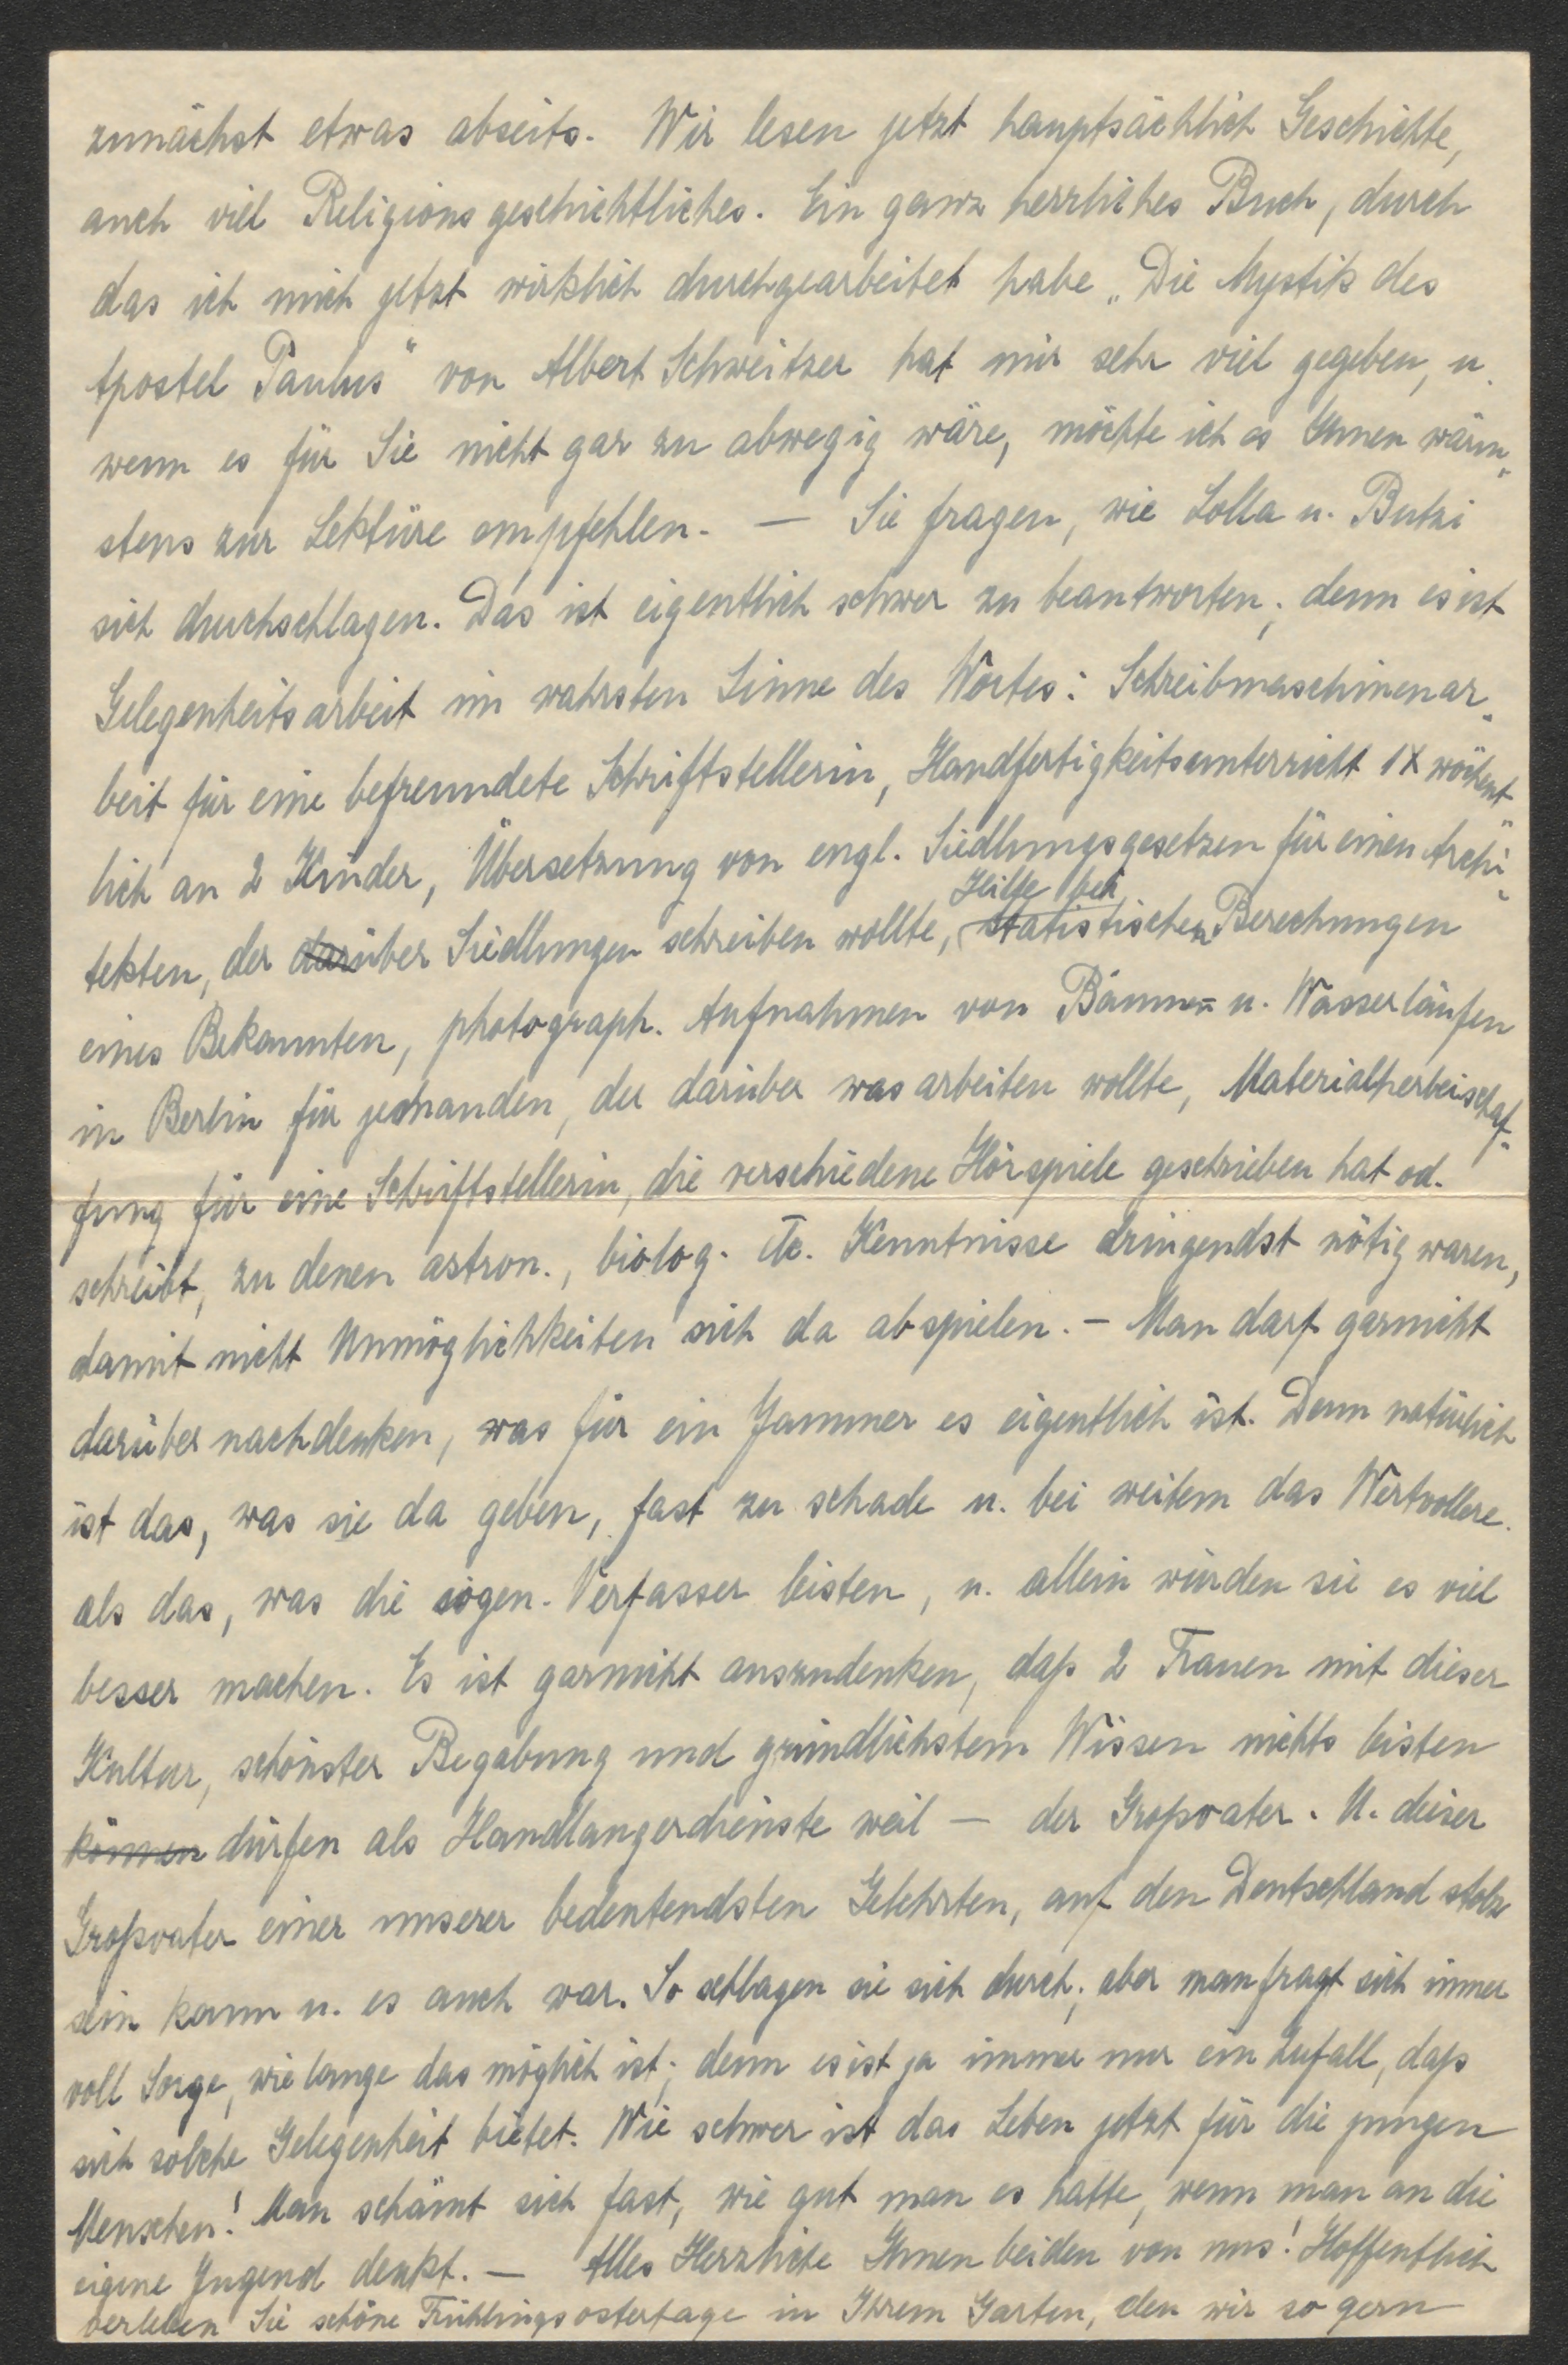 zunächst etwas abseits. Wir lesen jetzt hauptsächlich Geschichte,
auch viel Religionsgeschichtliches. Ein ganz herrliches Buch, durch
das ich mich jetzt wirklich durchgearbeitet habe „Die Mystik des
Apostel Paulus“ von Albert Schweitzer hat mir sehr viel gegeben, u.
wenn es für Sie nicht gar zu abwegig wäre, möchte ich es Ihnen wärm-
stens zur Lektüre empfehlen. — Sie fragen, wie Lolla u. Butzi
sich durchschlagen. Das ist eigentlich schwer zu beantworten; denn es ist
Gelegenheitsarbeit im wahrsten Sinne des Wortes: Schreibmaschinenar-
beit für eine befreundete Schriftstellerin, Handfertigkeitsunterricht 1x wöchent-
lich an 2 Kinder, Übersetzung von engl. Siedlungsgesetzen für einen Archi-
tekten, der darüber Siedlungen schreiben wollte, Hilfe bei statistischen Berechnungen
eines Bekannten, photograph. Aufnahmen von Bäumen u. Wasserläufen
in Berlin für jemanden, der darüber was arbeiten wollte, Materialherbeischaf-
fung für eine Schriftstellerin, die verschiedene Hörspiele geschrieben hat od.
schreibt, zu denen astron., biolog. etc. Kenntnisse dringendst nötig waren,
damit nicht Unmöglichkeiten sich da abspielen. – Man darf garnicht
darüber nachdenken, was für ein Jammer es eigentlich ist. Denn natürlich
ist das, was sie da geben, fast zu schade u. bei weitem das Wertvollere
als das, was die sogen. Verfasser leisten, u. allein würden sie es viel
besser machen. Es ist garnicht auszudenken, daß 2 Frauen mit dieser
Kultur, schönster Begabung und gründlichstem Wissen nichts leisten
können dürfen als Handlangerdienste weil — der Großvater. U. dieser
Großvater einer unserer bedeutendsten Gelehrten, auf den Deutschland stolz
sein kann u. es auch war. So schlagen sie sich durch; aber man fragt sich immer
voll Sorge, wie lange das möglich ist; denn es ist ja immer nur ein Zufall, daß
sich solche Gelegenheit bietet. Wie schwer ist das Leben jetzt für die jungen
Menschen! Man schämt sich fast, wie gut man es hatte, wenn man an die
eigene Jugend denkt. — Alles Herzliche Ihnen beiden von uns! Hoffentlich
verleben Sie schöne Frühlingsostertage in Ihrem Garten, den wir so gern